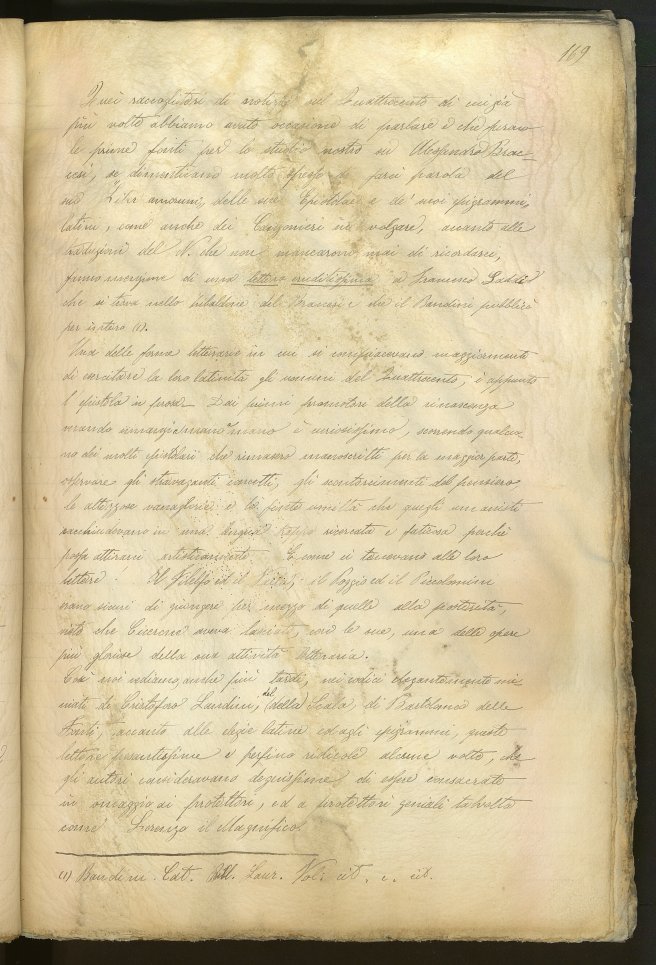 169
Quei raccoglitori di notizie nel Quattrocento di cui già
più volte abbiamo avuto occasione di parlare e che furono
le prime fonti per lo studio nostro su Alessandro Brac-
cesi, se dimenticano molto spesso di farci parola del
suo "Libr amorum, delle sue Epistolae e de' suoi epigrammi
latini, come anche dei Canzonieri in volgare, accanto alle
traduzioni del N. che non mancarono mai di ricordarci,
fanno menzione di una lettera eruditissima a Francesco Gaddi
che si trova nello zibaldone del Braccesi e che il Bandini pubblicò
per intero (1).
Una delle forme letterarie in cui si compiacevano maggiormente
di esercitare la loro latinità gli uomini del Quattrocento, è appunto
l'epistola in prosa. Dai primi promotori della rinascenza
venendo innanzi mano mano è curiosissimo, scorrendo qualcu-
no dei molti epistolari che rimasero manoscritti per la maggior parte,
osservare gli stravaganti concetti, gli contorcimenti del pensiero
le altezzose vanaglorie e le finte umiltà che quegli umanisti
racchiudevano in una lingua troppo ricercata e fatícosa perchè
possa attirarci artisticamente. E come ci tenevano alle loro
lettere. Il Filelfo ed il il Poggio ed il Piccolomini
erano sicuri di giungere per mezzo di quelle alla posterità,
visto che Cicerone aveva lasciato, con le sue, una delle opere
più gloriose della sua attività letteraria.
Così noi vediamo, anche più tardi, nei codici elegantemente mi-
niati di Cristoforo Landini, del della Scala, di Bartolomeo delle
Fonti, accanto alle elegie latine ed agli epigrammi, queste
lettere pesantissime e perfino ridicole alcune volte, che
gli autori consideravano degnissime di essere consacrate
in omaggio ai protettori, ed a protettori geniali talvolta
come Lorenzo il Magnifico.
(1) Bandini. Cat. Bibl. Laur. Vol. cit. c. cit.